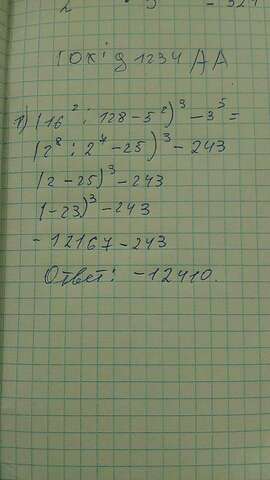 2 5 - 324
1) (16² : 128 - 5²)³ - 3⁵ =
(2⁸ : 2⁷ - 25)³ - 243
(2 - 25)³ - 243
(-23)³ - 243
- 12167 - 243
Ответ: -12410.